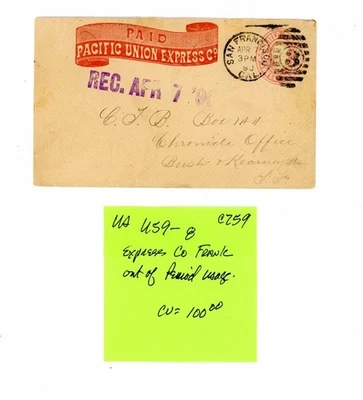 PAID
PACIFIC UNION EXPRESS Co
REC. APR 7 '90
SAN FRANCISCO
APR 7
3 PM
90
CAL.
3
C.T.B. Box 144
Chronicle Office
Bush & Kearny Sts
S.F.
U59-8 C759
Express Co Frank
out of Period usage.
CV= 100.00